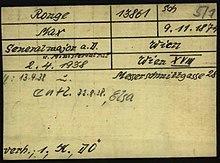 Ronge 13861 Sch 5/1
Max 9.11.1874
Generalmajor a.D. Wien
u. Ministerialrat
2.4.1938 Wien XVIII
13.9.38 Messerschmidtgasse 28
entl. 23.9.38, Elsa
verh., 1,